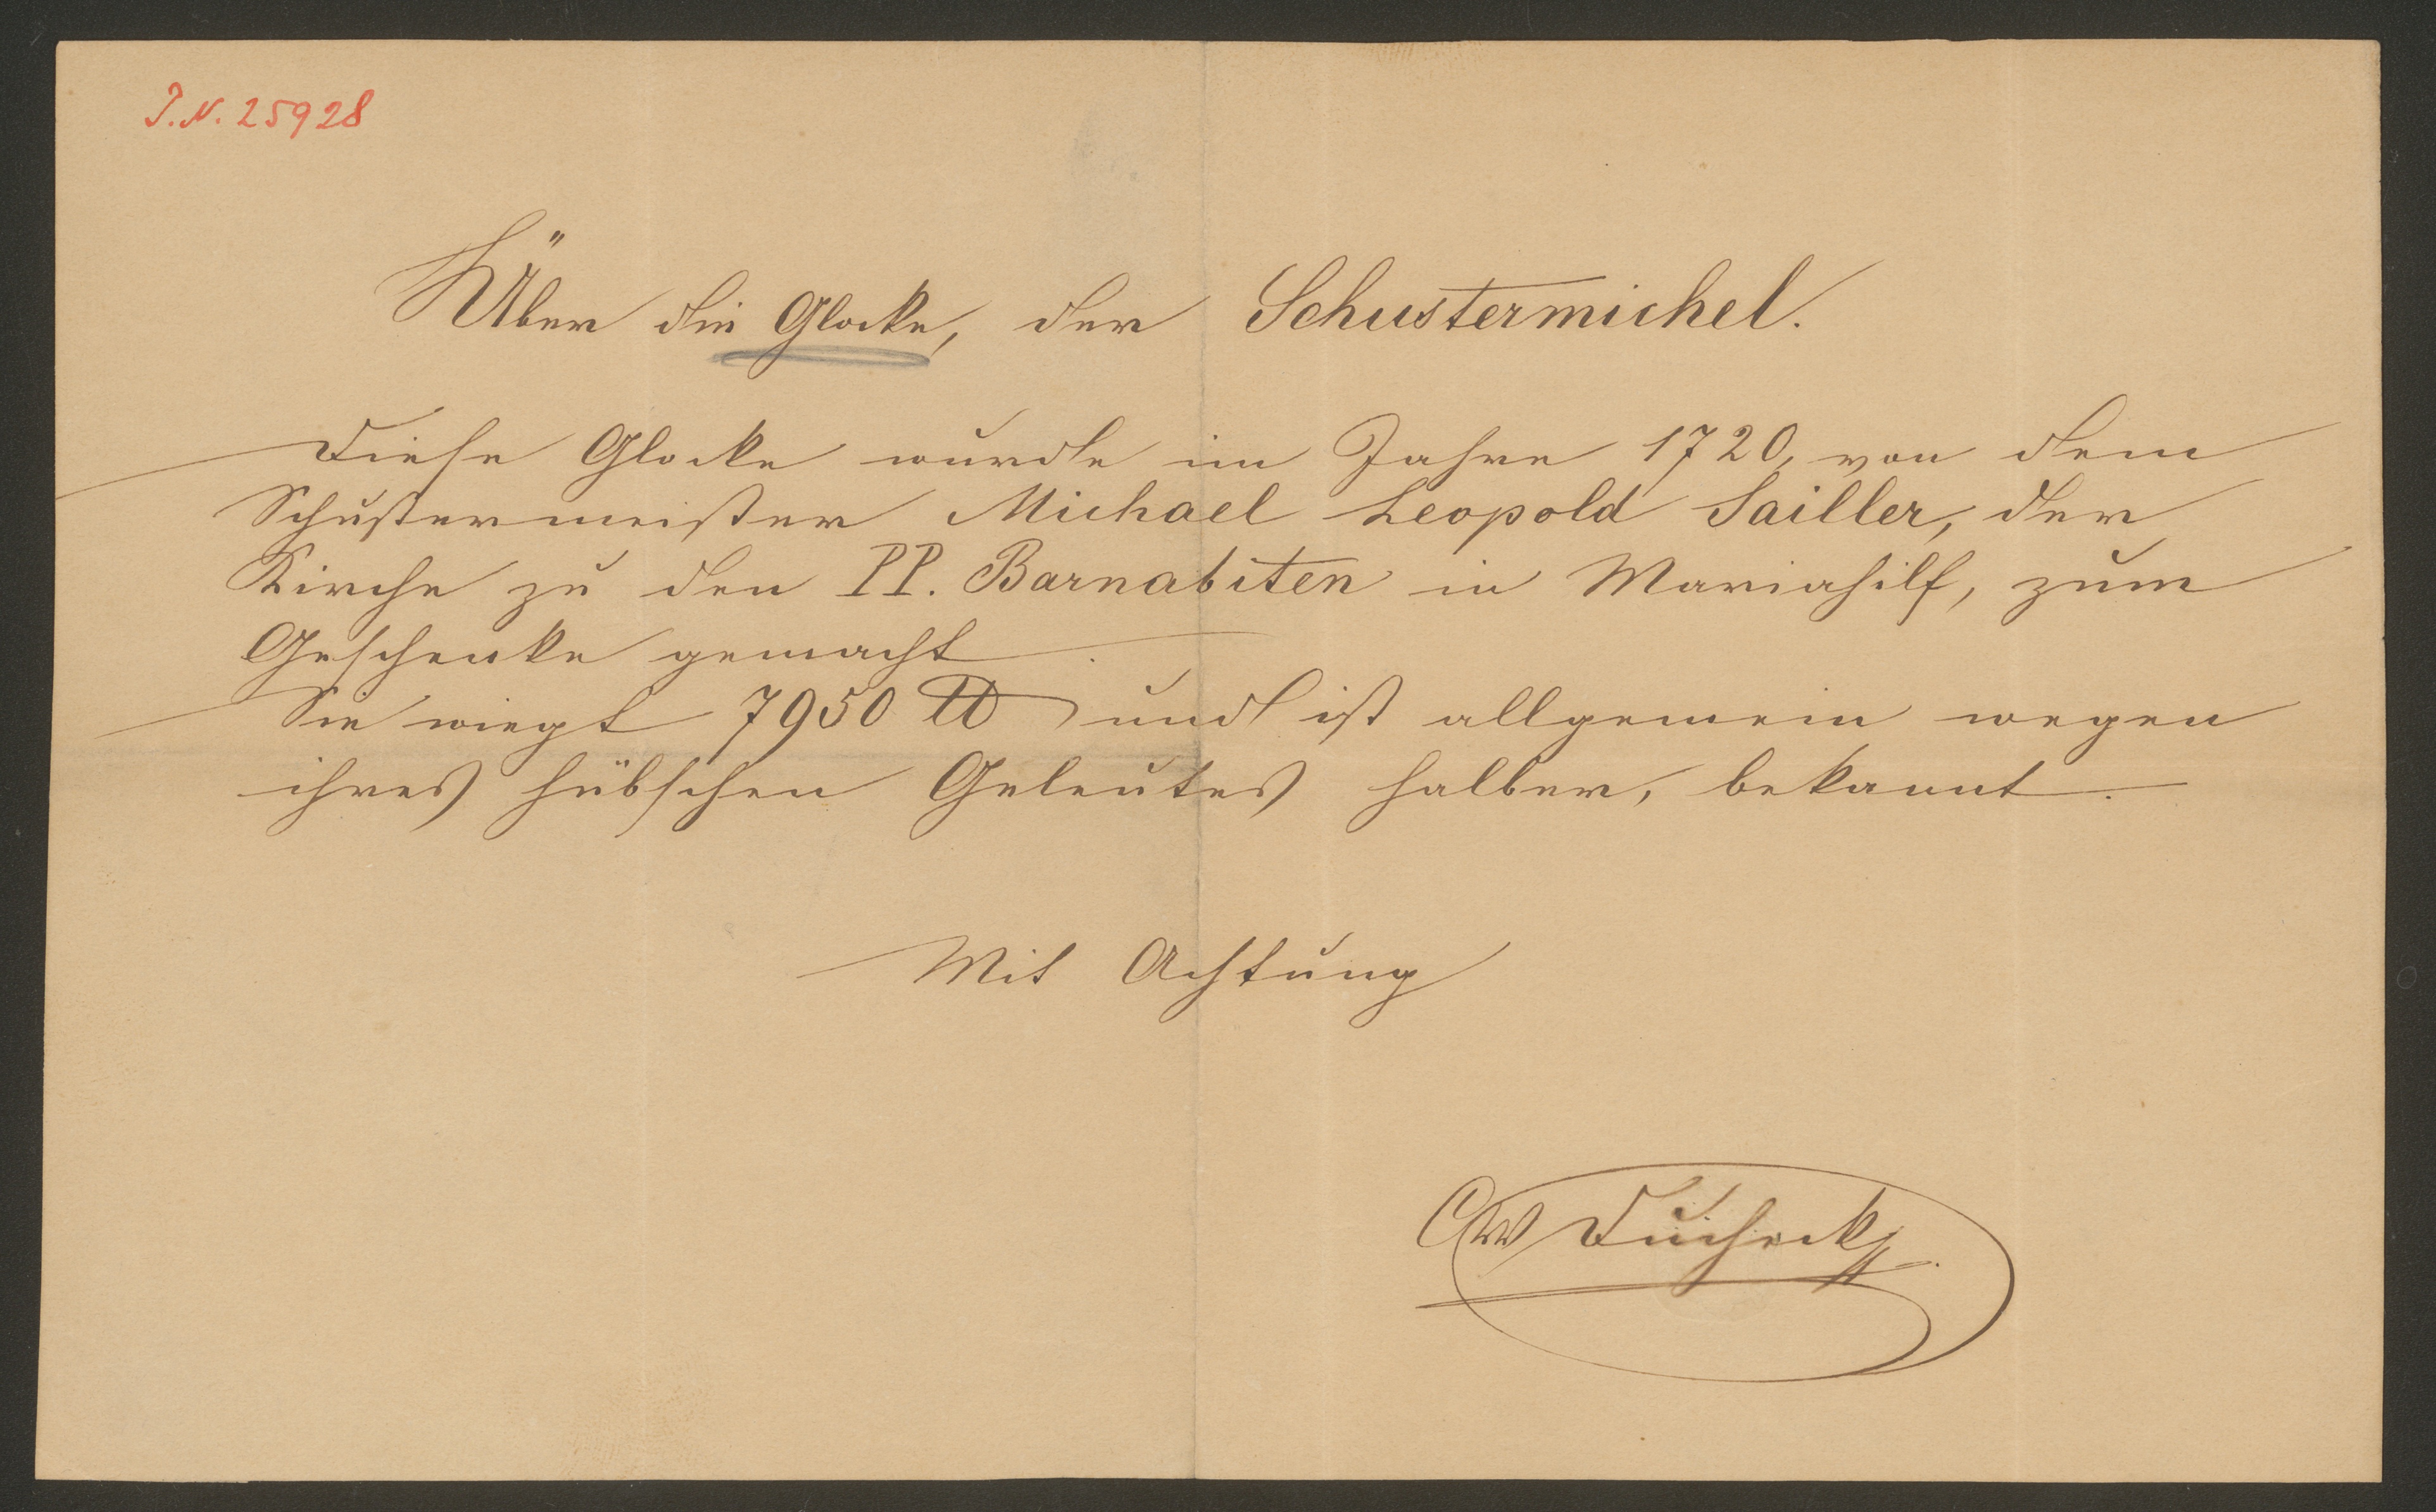 I.N. 25928
Über die Glocke, der Schustermichel.
Diese Glocke wurde im Jahre 1720, von dem
Schustermeister Michael Leopold Sailler, der
Kirche zu den PP. Barnabiten in Mariahilf, zum
Geschenke gemacht.
Sie wiegt 7950 ℔ und ist allgemein wegen
ihres hübschen Geleutes halber, bekannt.
Mit Achtung